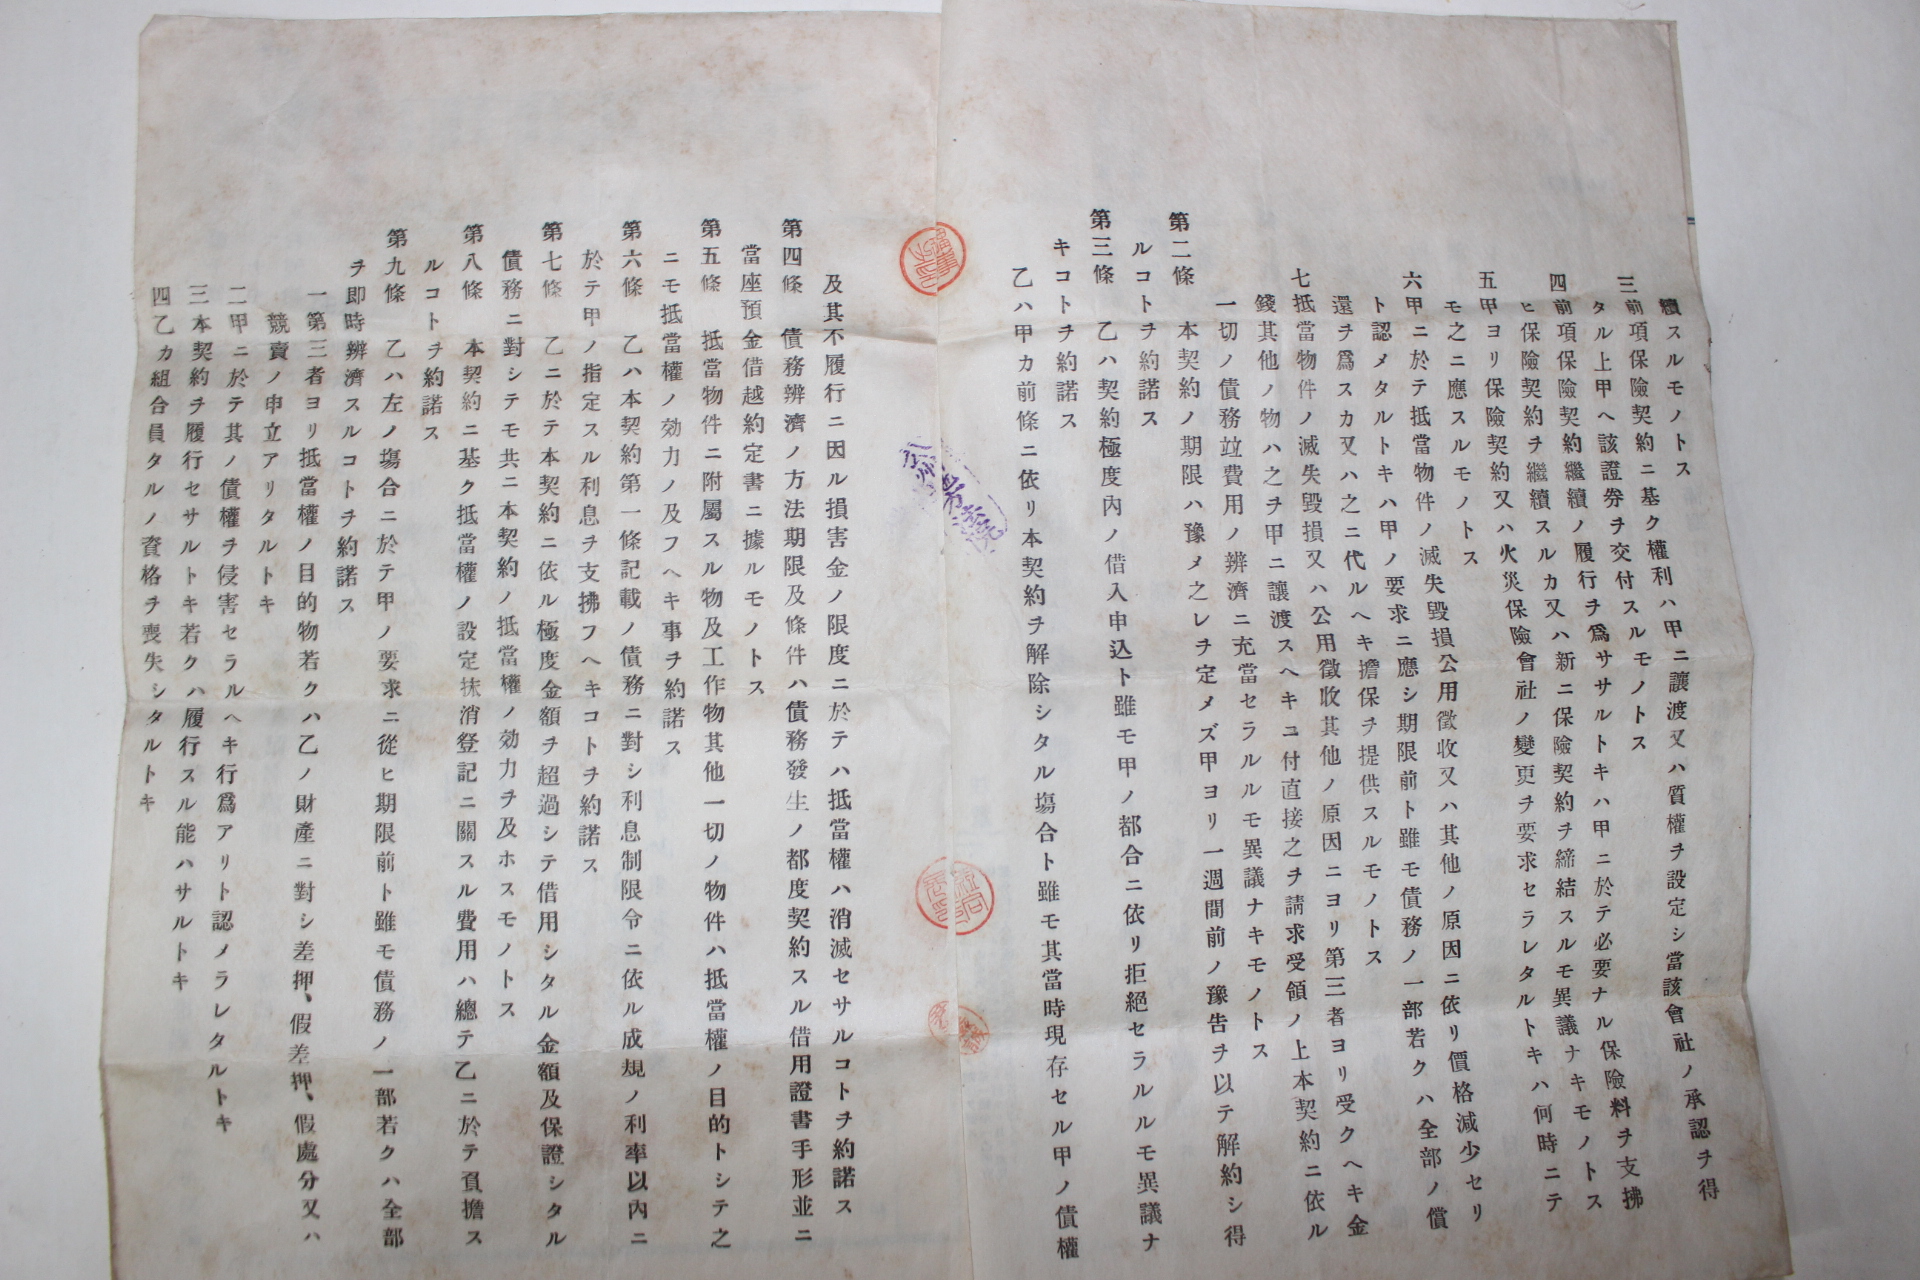 續スルモノトス
三前項保險契約ニ基ク權利ハ甲ニ讓渡又ハ質權ヲ設定シ當該會社ノ承認ヲ得
タル上甲ヘ該證券ヲ交付スルモノトス
四前項保險契約繼續ノ履行ヲ爲ササルトキハ甲ニ於テ必要ナル保險料ヲ支拂
ヒ保險契約ヲ繼續スルカ又ハ新ニ保險契約ヲ締結スルモ異議ナキモノトス
五甲ヨリ保險契約又ハ火災保險會社ノ變更ヲ要求セラレタルトキハ何時ニテ
モ之ニ應スルモノトス
六甲ニ於テ抵當物件ノ滅失毀損公用徵收又ハ其他ノ原因ニ依リ價格減少セリ
ト認メタルトキハ甲ノ要求ニ應シ期限前ト雖モ債務ノ一部若クハ全部ノ償
還ヲ爲スカ又ハ之ニ代ルヘキ擔保ヲ提供スルモノトス
七抵當物件ノ滅失毀損又ハ公用徵收其他ノ原因ニヨリ第三者ヨリ受クヘキ金
錢其他ノ物ハ之ヲ甲ニ讓渡スヘキニ付直接之ヲ請求受領ノ上本契約ニ依ル
一切ノ債務竝費用ノ辨濟ニ充當セラルルモ異議ナキモノトス
第二條 本契約ノ期限ハ豫メ之レヲ定メズ甲ヨリ一週間前ノ豫告ヲ以テ解約シ得
ルコトヲ約諾ス
第三條 乙ハ契約極度內ノ借入申込ト雖モ甲ノ都合ニ依リ拒絕セラルルモ異議ナ
キコトヲ約諾ス
乙ハ甲カ前條ニ依リ本契約ヲ解除シタル場合ト雖モ其當時現存セル甲ノ債權
及其不履行ニ因ル損害金ノ限度ニ於テハ抵當權ハ消滅セサルコトヲ約諾ス
第四條 債務辨濟ノ方法期限及條件ハ債務發生ノ都度契約スル借用證書手形並ニ
當座預金借越約定書ニ據ルモノトス
第五條 抵當物件ニ附屬スル物及工作物其他一切ノ物件ハ抵當權ノ目的トシテ之
ニモ抵當權ノ効力ノ及フヘキ事ヲ約諾ス
第六條 乙ハ本契約第一條記載ノ債務ニ對シ利息制限令ニ依ル成規ノ利率以內ニ
於テ甲ノ指定スル利息ヲ支拂フヘキコトヲ約諾ス
第七條 乙ニ於テ本契約ニ依ル極度金額ヲ超過シテ借用シタル金額及保證シタル
債務ニ對シテモ共ニ本契約ノ抵當權ノ効力ヲ及ホスモノトス
第八條 本契約ニ基ク抵當權ノ設定抹消登記ニ關スル費用ハ總テ乙ニ於テ負擔ス
ルコトヲ約諾ス
第九條 乙ハ左ノ場合ニ於テ甲ノ要求ニ從ヒ期限前ト雖モ債務ノ一部若クハ全部
ヲ卽時辨濟スルコトヲ約諾ス
一第三者ヨリ抵當權ノ目的物若クハ乙ノ財產ニ對シ差押、假差押、假處分又ハ
競賣ノ申立アリタルトキ
二甲ニ於テ其ノ債權ヲ侵害セラルヘキ行爲アリト認メラレタルトキ
三本契約ヲ履行セサルトキ若クハ履行スル能ハサルトキ
四乙カ組合員タルノ資格ヲ喪失シタルトキ